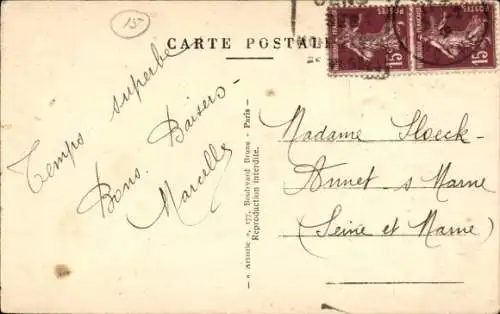 15-
CARTE POSTALE
POSTES
15c
15c
Temps superbe
Bons Baisers -
Marcelle
« Artistic », 177, Boulevard Brune - Paris -
Reproduction interdite.
Madame Sloeck-
Annet s Marne
(Seine et Marne)